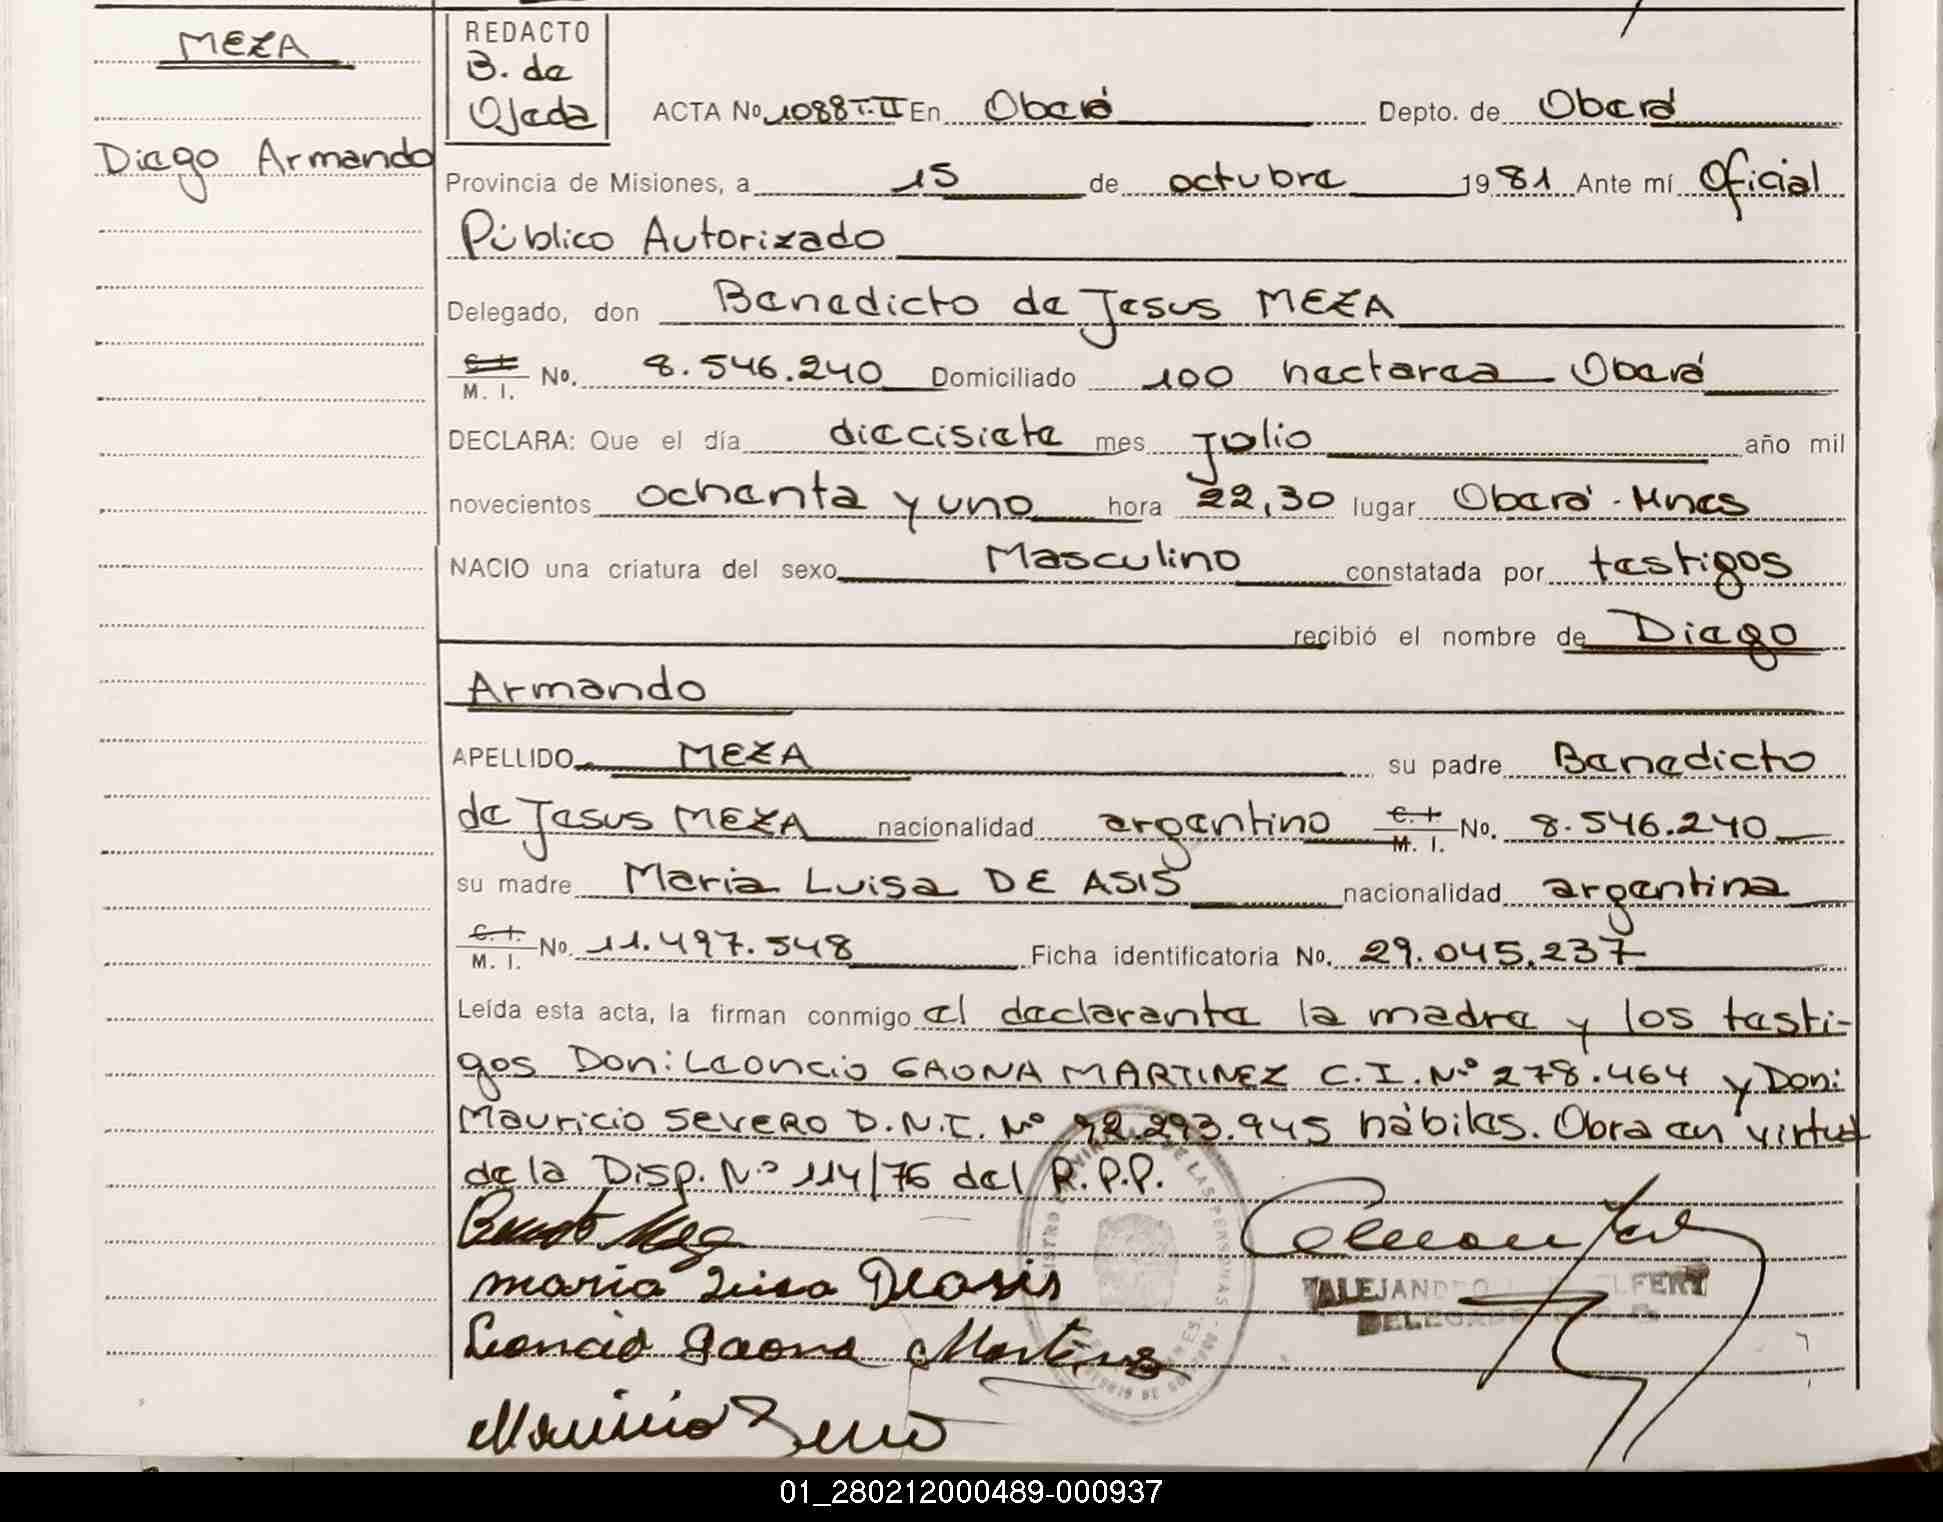 MEZA
Diego Armando
REDACTO
B. de
Ojeda
ACTA No. 1088 T. II En Oberá Depto. de Oberá
Provincia de Misiones, a 15 de octubre 1981 Ante mí Oficial
Público Autorizado
Delegado, don Benedicto de Jesus MEZA
C. I.
M. I. No. 8.546.240 Domiciliado 100 hectarea Oberá
DECLARA: Que el día diecisiete mes julio año mil
novecientos ochenta y uno hora 22,30 lugar Oberá - Mnes
NACIO una criatura del sexo Masculino constatada por testigos
recibió el nombre de Diego
Armando
APELLIDO MEZA su padre Benedicto
de Jesus MEZA nacionalidad argentino C. I. M. I. No. 8.546.240
su madre Maria Luisa DE ASIS nacionalidad argentina
C. I.
M. I. No. 11.497.548 Ficha identificatoria No. 29.045.237
Leída esta acta, la firman conmigo el declarante la madre y los testi-
gos Don: Leoncio GAONA MARTINEZ C.I. Nº 278.464 y Don:
Mauricio SEVERO D.N.I. Nº 92.293.945 hábiles. Obra en virtud
de la Disp. Nº 114/76 del R.P.P.
Maria Luisa Deasis
Leoncio Gaona Martinez
Mauricio Severo
DE LAS PERSONAS
ALEJANDRO
DELEGADO
01_280212000489-000937